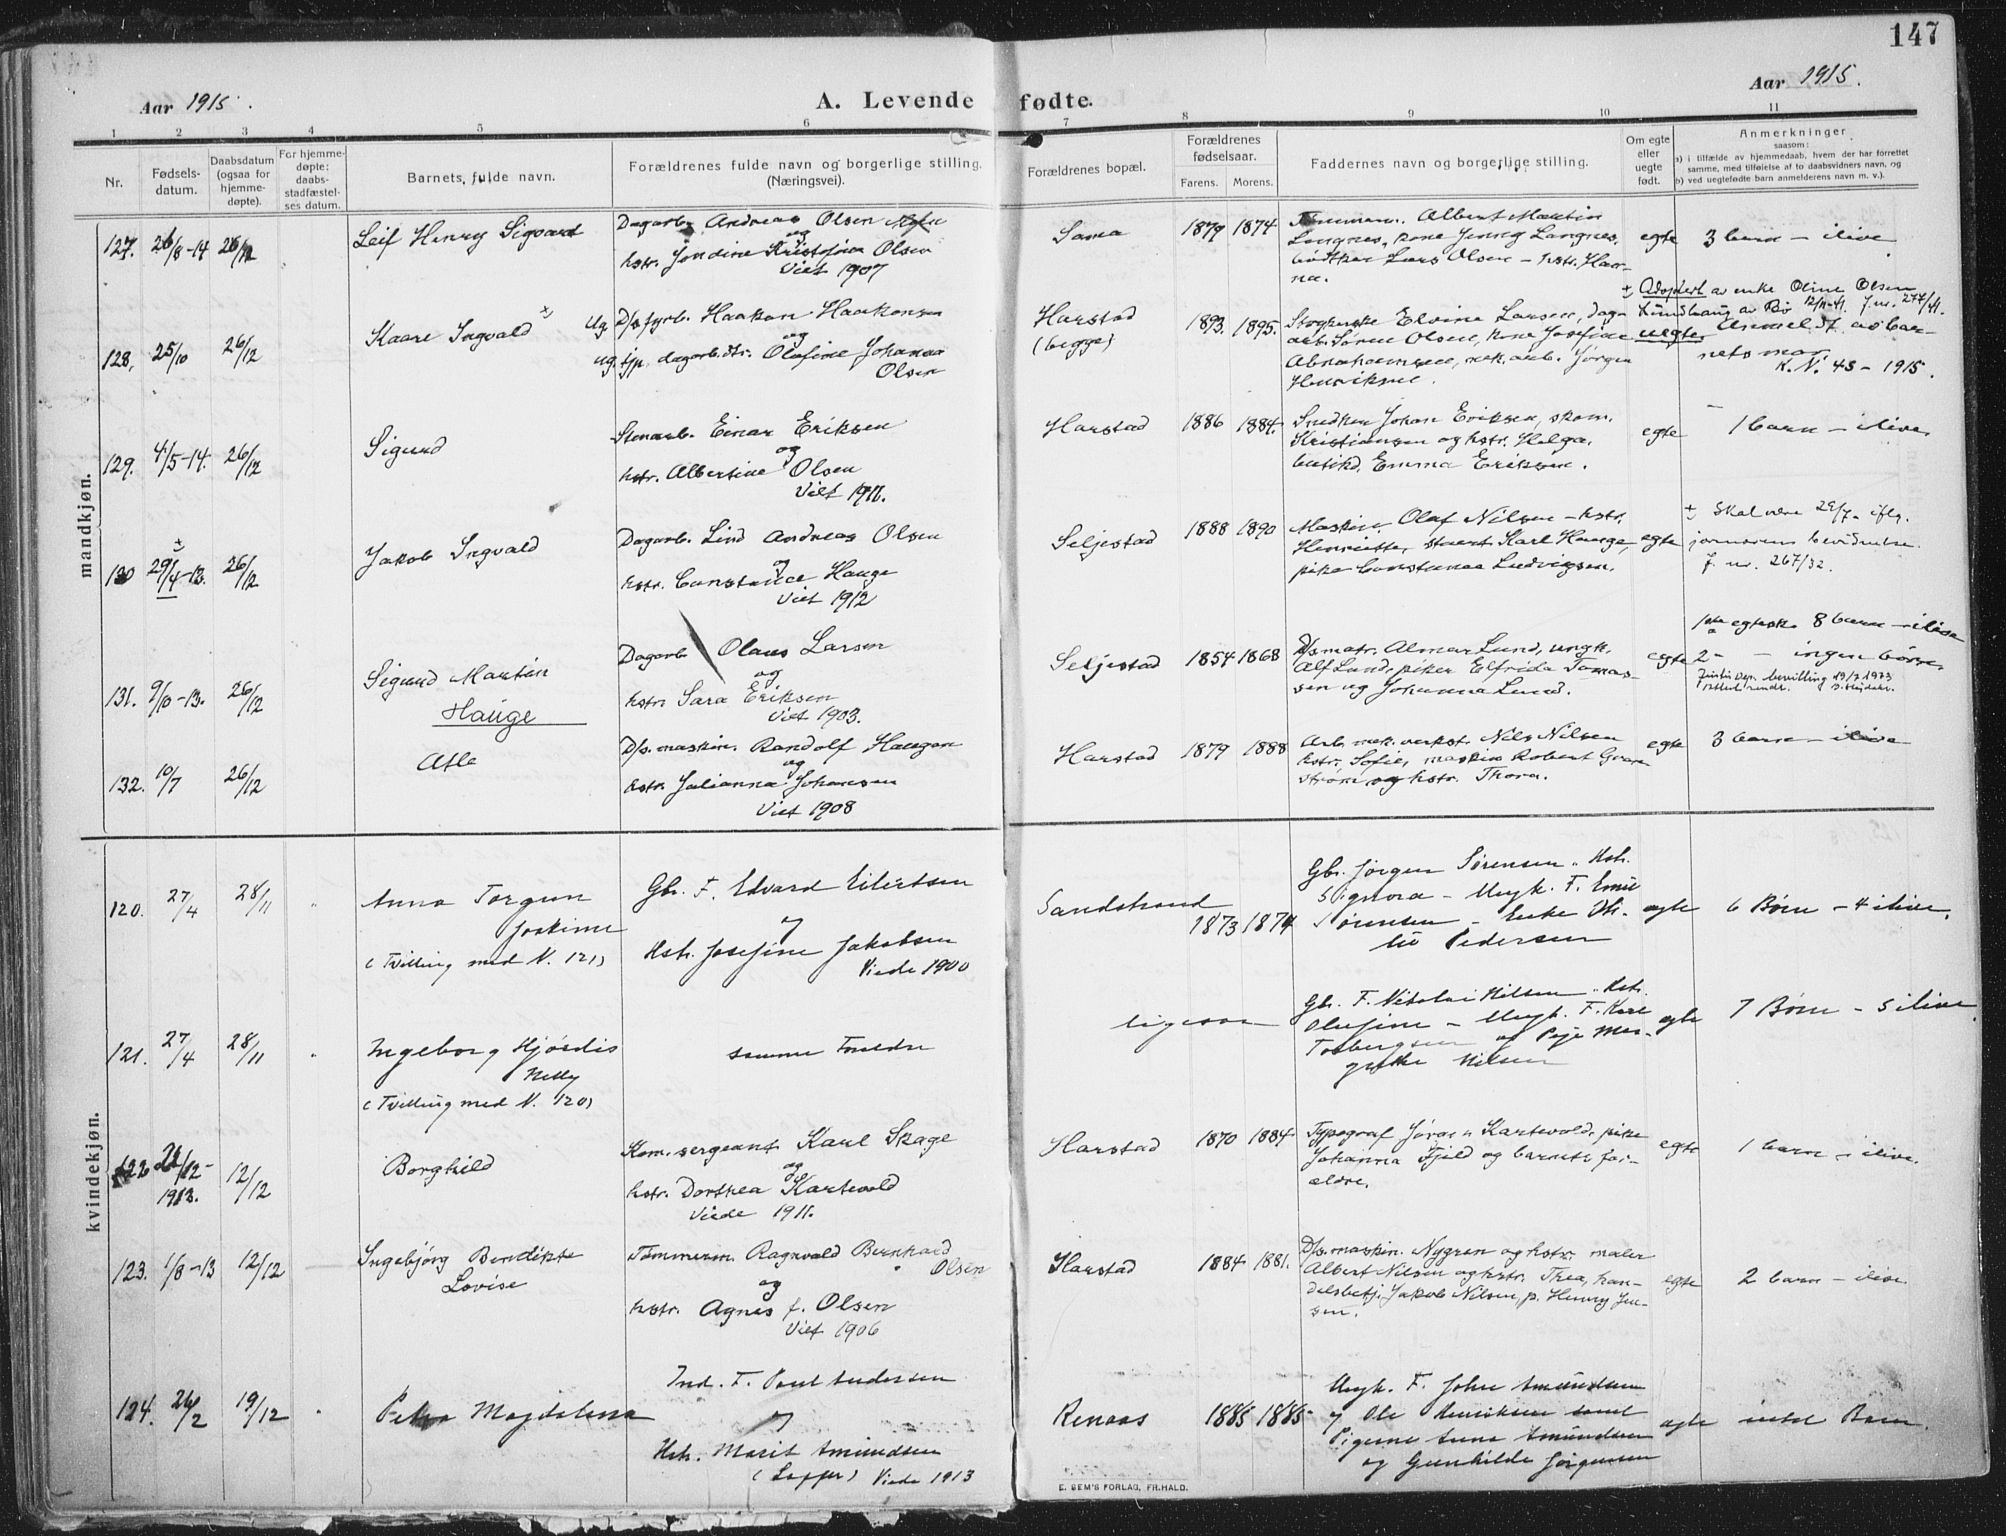 147
Aar 1915.
A. Levende fødte.
Aar 1915.
1 2 3 4 5 6 7 8 9 10 11
Nr.
Fødsels-
datum.
Daabsdatum
(ogsaa for
hjemme-
døpte).
For hjemme-
døpte;
daabs-
stadfæstel-
ses datum.
Barnets fulde navn.
Forældrenes fulde navn og borgerlige stilling.
(Næringsvei).
Forældrenes bopæl.
Forældrenes
fødselsaar.
Farens. Morens.
Faddernes navn og borgerlige stilling.
Om egte
eller
uegte
født.
Anmerkninger
saasom:
a) i tilfælde av hjemmedaab, hvem der har forrettet
samme, med tilføielse af to daabsvidners navn, og
b) ved uegtefødte barn anmelderens navn m. v.).
mandkjøn.
127. 26/8-14 26/12
Leif Henry Sigvard
Dagarb. Andreas Olsen
og
hstr. Jondine Kristofine Olsen
Viet 1907
Sama 1879 1874
Albert Martin
Langnes, kone Jenny Langnes,
Lars Olsen - hstr. Han-
na.
egte 3 barn - ilive
128. 25/10 26/12
Kaare Ingvald
Ug D/s fyrb. Haakon Haakonsen
og
ug. tjp. dagarb.dtr. Olafine Johanna
Olsen
Harstad
(begge)
1893. 1895.
Elvine Larsen, dag-
arb. Søren Olsen, kone Josefine
Abrahamsen, mek. arb. Jörgen
Henriksen.
Adoptert av enke Oline Olsen
av Bö 12/11-41. J.nr. 277/41.
uegte Anmeldt av bar-
nets mor.
K. N. 43 - 1915.
129. 4/5-14. 26/12
Sigurd
Stenarb. Einar Eriksen
og
hstr. Albertine Olsen
Viet 1911.
Harstad 1886 1884.
Snedker Johan Eriksen, skom.
Kristiansen og hstr. Helga,
butikd. Emma Eriksen.
egte 1 barn - ilive.
130 29/4-13. 26/12
Jakob Ingvald
Dagarb. Lind Andreas Olsen
og
hstr. Constance Hauge
Viet 1912
Seljestad 1888 1890
Maskin. Olaf Nilsen - hstr.
Henriette, Karl Hauge,
pike Constanse Ludvigsen.
egte
Skal være 29/7. iflg.
jormorens bevidnelse.
J. nr. 267/32.
131. 9/10-13. 26/12
Sigurd Martin
Hauge
Dagarb. Olaus Larsen
og
hstr. Sara Eriksen
Viet 1903.
Seljestad 1854 1868
D/s matr. Almar Lund, ungk.
Alf Lund, piker Elfrida Tomas-
sen og Johanna Lund.
egte
1ste egtesk. 8 barn - ilive
2 - - ingen børn
Justis Dep. bevilling 19/7 1973
132. 10/7 26/12
Atle
D/s. maskin. Randolf Haugan
og
hstr. Julianna Johansen
Viet 1908
Harstad 1879 1888
Arb. mek. verkst. Nils Nilsen
hstr. Sofie, maskin Robert Gran
ström og hstr. Thora.
egte 3 barn - ilive
kvindekjøn.
120. 27/4 28/11 "
Anna Torgun
Joakime
(Tvilling med N. 121)
Gbr. F. Edvard Eilertsen
og
Hstr. Josefine Jakobsen
Viede 1900
Sandstrand
1873 1874
Gbr. Jørgen Sørensen - Hstr.
Signora - Ungk. F. Emil
Sørensen - Enke
Pedersen
egte 6 Børn - 4 ilive.
121. 27/4 28/11 "
Ingeborg Hjördis
Nelly
(Tvilling med N. 120)
samme Foreldre
ligesaa
Gbr. F. Nikolai Nilsen - Hstr.
Olufine - Ungk. F. Karl
Torbergsen og Pige Mar-
grethe Nilsen
egte 7 Børn - 5 ilive.
122 21/12-
1913. 12/12
Borghild
Kom. sergeant Karl Skage
og
hstr. Dorthea Kartevold
Viede 1911.
Harstad 1870 1884
Typograf Kartevold, pike
Johanna Fjeld og barnets for-
ældre.
egte 1 barn - ilive.
123. 1/8-13 12/12
Ingebjörg Bendikte
Lovise
Tömmerm. Ragnvald Bernhard
Olsen
og
hstr. Agnes f. Olsen
Viet 1906
Harstad 1884 1881.
D/s. maskin. Nygren og hstr. maler
Albert Nilsen og hstr. Thea, han-
delsbetj. Jakob Nilsen, p. Henny Jen-
sen.
egte 2 barn - ilive.
124. 26/2 19/12 "
Petra Magdalena
Ind. F. Paul Andersen
og
Hstr. Marit Amundsen
(Lapper) Viede 1913
Renaas 1885 1885
Ungk. F. Johan Amundsen
og Ole Henriksen samt
Pigerne Anna Amundsen
og Gunhilde Jørgensen
egte intet Barn
E. SEM'S FORLAG, FR.HALD.